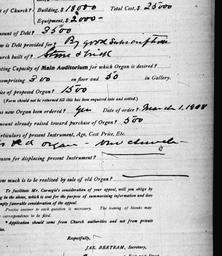 of Church? Building, $ 18000 Total Cost, $ 25000
Equipment, $ 2000
mount of Debt? 3500
n is Debt provided for? By good Subscription
urch built of? Stone & Brick
ating Capacity of Main Auditorium for which Organ is desired?
omprising 300 on floor and 50 in Gallery.
rice of proposed Organ? 1500
(Form should not be returned till this has been inquired into and settled.)
as new Organ been ordered? yes Date of order? March 1, 1908
mount already raised toward purchase of Organ? 500
articulars of present Instrument, Age, Cost Price, Etc.
organ - new church
eason for displacing present Instrument?
ow much is to be realized by sale of old Organ?
To facilitate Mr. Carnegie's consideration of your appeal, will you oblige by
in the above, which is sent for the purpose of summarizing information and does
imply favorable consideration of the appeal.
Precise answer to each question is necessary. The issuing of blanks may
correspondence to be filed.
Application should come from Church authorities and not from private
Respectfully,
JAS. BERTRAM, Secretary,